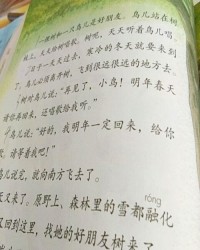 一棵树和一只鸟儿是好朋友。鸟儿站在树
枝上，天天给树唱歌。树呢，天天听着鸟儿唱。
日子一天天过去，寒冷的冬天就要来到
了。鸟儿必须离开树，飞到很远很远的地方去。
树对鸟儿说："再见了，小鸟！明年春天
请你再回来，还唱歌给我听。"
鸟儿说："好的，我明年一定回来，给你
歌，请等着我吧！"
鸟儿说完，就向南方飞去了。
róng
天又来了。原野上、森林里的雪都融化
又回到这里，找她的好朋友树来了